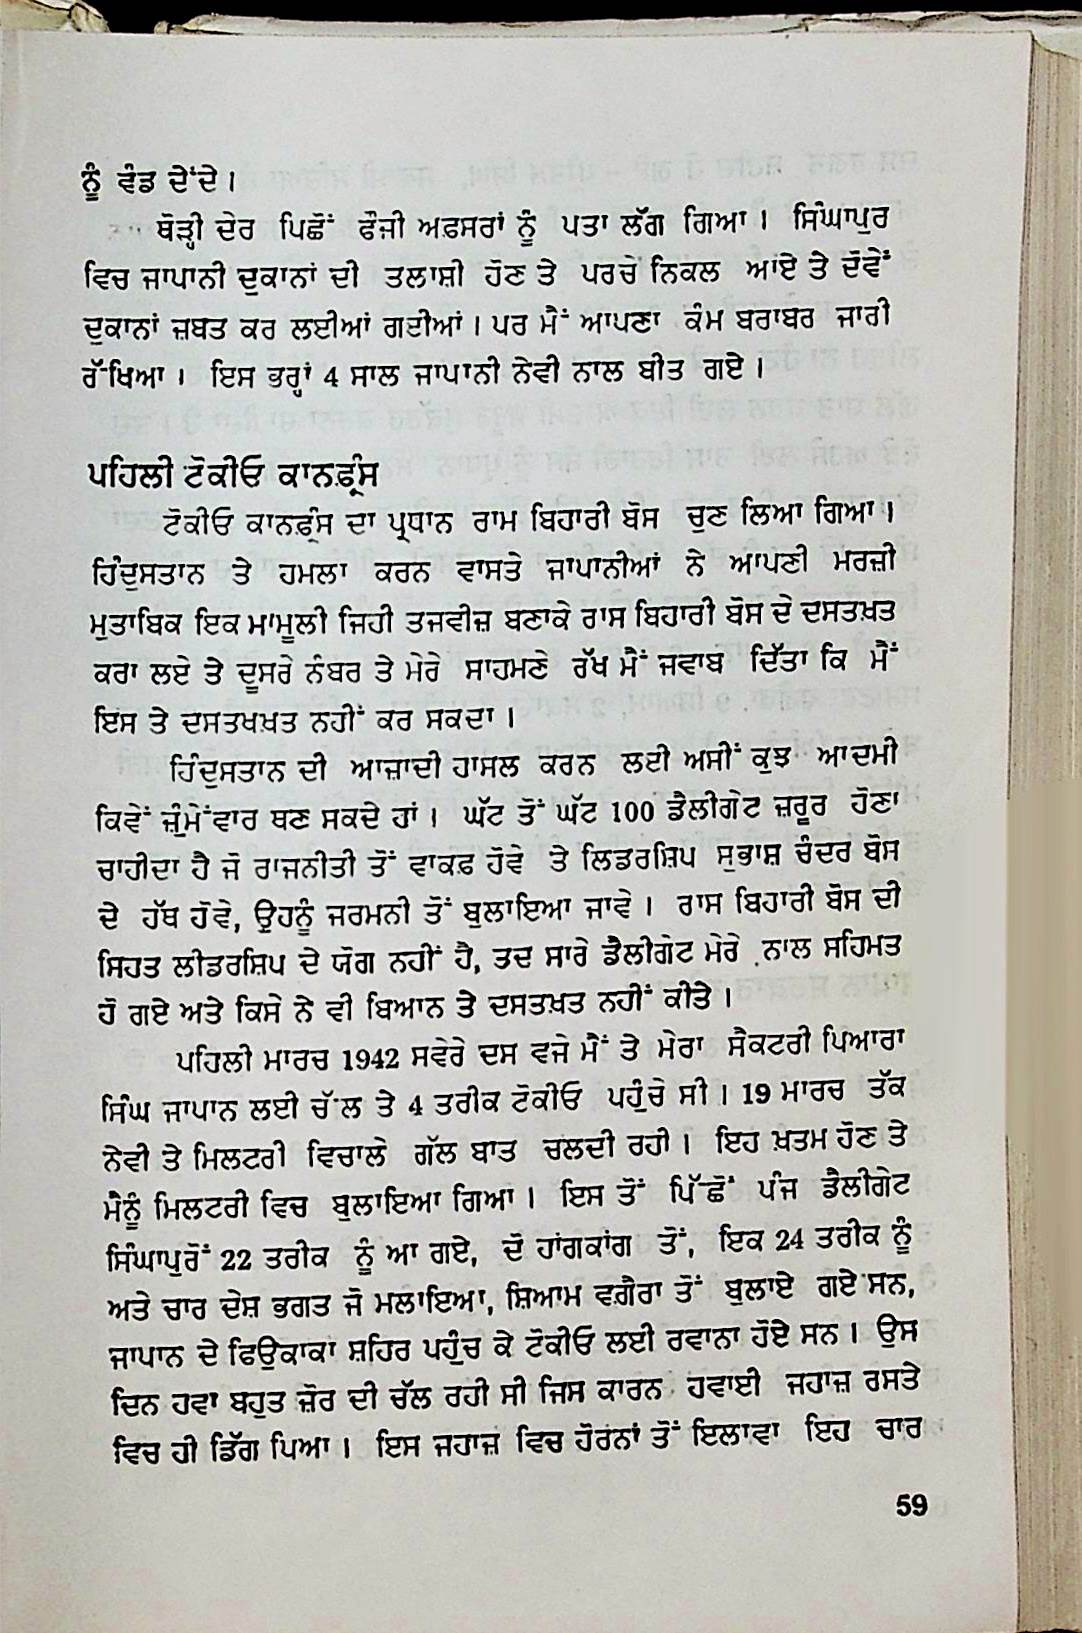 ਨੂੰ ਵੰਡ ਦੇਂਦੇ।
ਥੋੜ੍ਹੀ ਦੇਰ ਪਿਛੋਂ ਫੌਜੀ ਅਫ਼ਸਰਾਂ ਨੂੰ ਪਤਾ ਲੱਗ ਗਿਆ। ਸਿੰਘਾਪੁਰ
ਵਿਚ ਜਾਪਾਨੀ ਦੁਕਾਨਾਂ ਦੀ ਤਲਾਸ਼ੀ ਹੋਣ ਤੇ ਪਰਚੇ ਨਿਕਲ ਆਏ ਤੇ ਦੋਵੇਂ
ਦੁਕਾਨਾਂ ਜ਼ਬਤ ਕਰ ਲਈਆਂ ਗਈਆਂ। ਪਰ ਮੈਂ ਆਪਣਾ ਕੰਮ ਬਰਾਬਰ ਜਾਰੀ
ਰੱਖਿਆ। ਇਸ ਭਰ੍ਹਾਂ 4 ਸਾਲ ਜਾਪਾਨੀ ਨੇਵੀ ਨਾਲ ਬੀਤ ਗਏ।
ਪਹਿਲੀ ਟੋਕੀਓ ਕਾਨਫ਼੍ਰੰਸ
ਟੋਕੀਓ ਕਾਨਫ਼੍ਰੰਸ ਦਾ ਪ੍ਰਧਾਨ ਰਾਮ ਬਿਹਾਰੀ ਬੋਸ ਚੁਣ ਲਿਆ ਗਿਆ।
ਹਿੰਦੁਸਤਾਨ ਤੇ ਹਮਲਾ ਕਰਨ ਵਾਸਤੇ ਜਾਪਾਨੀਆਂ ਨੇ ਆਪਣੀ ਮਰਜ਼ੀ
ਮੁਤਾਬਿਕ ਇਕ ਮਾਮੂਲੀ ਜਿਹੀ ਤਜਵੀਜ਼ ਬਣਾਕੇ ਰਾਸ ਬਿਹਾਰੀ ਬੋਸ ਦੇ ਦਸਤਖ਼ਤ
ਕਰਾ ਲਏ ਤੇ ਦੂਸਰੇ ਨੰਬਰ ਤੇ ਮੇਰੇ ਸਾਹਮਣੇ ਰੱਖ ਮੈਂ ਜਵਾਬ ਦਿੱਤਾ ਕਿ ਮੈਂ
ਇਸ ਤੇ ਦਸਤਖਖ਼ਤ ਨਹੀਂ ਕਰ ਸਕਦਾ।
ਹਿੰਦੁਸਤਾਨ ਦੀ ਆਜ਼ਾਦੀ ਹਾਸਲ ਕਰਨ ਲਈ ਅਸੀਂ ਕੁਝ ਆਦਮੀ
ਕਿਵੇਂ ਜ਼ੁੰਮੇਂਵਾਰ ਬਣ ਸਕਦੇ ਹਾਂ। ਘੱਟ ਤੋਂ ਘੱਟ 100 ਡੈਲੀਗੇਟ ਜ਼ਰੂਰ ਹੋਣਾ
ਚਾਹੀਦਾ ਹੈ ਜੋ ਰਾਜਨੀਤੀ ਤੋਂ ਵਾਕਫ਼ ਹੋਵੇ ਤੇ ਲਿਡਰਸ਼ਿਪ ਸੁਭਾਸ਼ ਚੰਦਰ ਬੋਸ
ਦੇ ਹੱਥ ਹੋਵੇ, ਉਹਨੂੰ ਜਰਮਨੀ ਤੋਂ ਬੁਲਾਇਆ ਜਾਵੇ। ਰਾਸ ਬਿਹਾਰੀ ਬੋਸ ਦੀ
ਸਿਹਤ ਲੀਡਰਸ਼ਿਪ ਦੇ ਯੋਗ ਨਹੀਂ ਹੈ, ਤਦ ਸਾਰੇ ਡੈਲੀਗੇਟ ਮੇਰੇ ਨਾਲ ਸਹਿਮਤ
ਹੋ ਗਏ ਅਤੇ ਕਿਸੇ ਨੇ ਵੀ ਬਿਆਨ ਤੇ ਦਸਤਖ਼ਤ ਨਹੀਂ ਕੀਤੇ।
ਪਹਿਲੀ ਮਾਰਚ 1942 ਸਵੇਰੇ ਦਸ ਵਜੇ ਮੈਂ ਤੇ ਮੇਰਾ ਸੈਕਟਰੀ ਪਿਆਰਾ
ਸਿੰਘ ਜਾਪਾਨ ਲਈ ਚੱਲ ਤੇ 4 ਤਰੀਕ ਟੋਕੀਓ ਪਹੁੰਚੇ ਸੀ। 19 ਮਾਰਚ ਤੱਕ
ਨੇਵੀ ਤੇ ਮਿਲਟਰੀ ਵਿਚਾਲੇ ਗੱਲ ਬਾਤ ਚਲਦੀ ਰਹੀ। ਇਹ ਖ਼ਤਮ ਹੋਣ ਤੇ
ਮੈਨੂੰ ਮਿਲਟਰੀ ਵਿਚ ਬੁਲਾਇਆ ਗਿਆ। ਇਸ ਤੋਂ ਪਿੱਛੋਂ ਪੰਜ ਡੈਲੀਗੇਟ
ਸਿੰਘਾਪੁਰੋਂ 22 ਤਰੀਕ ਨੂੰ ਆ ਗਏ, ਦੋ ਹਾਂਗਕਾਂਗ ਤੋਂ, ਇਕ 24 ਤਰੀਕ ਨੂੰ
ਅਤੇ ਚਾਰ ਦੇਸ਼ ਭਗਤ ਜੋ ਮਲਾਇਆ, ਸ਼ਿਆਮ ਵਗ਼ੈਰਾ ਤੋਂ ਬੁਲਾਏ ਗਏ ਸਨ,
ਜਾਪਾਨ ਦੇ ਫਿਉਕਾਕਾ ਸ਼ਹਿਰ ਪਹੁੰਚ ਕੇ ਟੋਕੀਓ ਲਈ ਰਵਾਨਾ ਹੋਏ ਸਨ। ਉਸ
ਦਿਨ ਹਵਾ ਬਹੁਤ ਜ਼ੋਰ ਦੀ ਚੱਲ ਰਹੀ ਸੀ ਜਿਸ ਕਾਰਨ ਹਵਾਈ ਜਹਾਜ਼ ਰਸਤੇ
ਵਿਚ ਹੀ ਡਿੱਗ ਪਿਆ। ਇਸ ਜਹਾਜ਼ ਵਿਚ ਹੋਰਨਾਂ ਤੋਂ ਇਲਾਵਾ ਇਹ ਚਾਰ
59